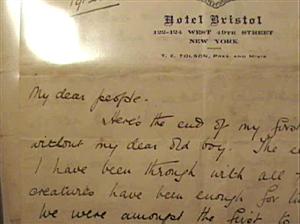 Hotel Bristol
122-124 WEST 49TH STREET
NEW YORK
T. E. TOLSON, PRES. AND MNGR
My dear people.
Here's the end of my first
without my dear old boy. The
I have been through with all
creatures have been enough for
We were amongst the first to